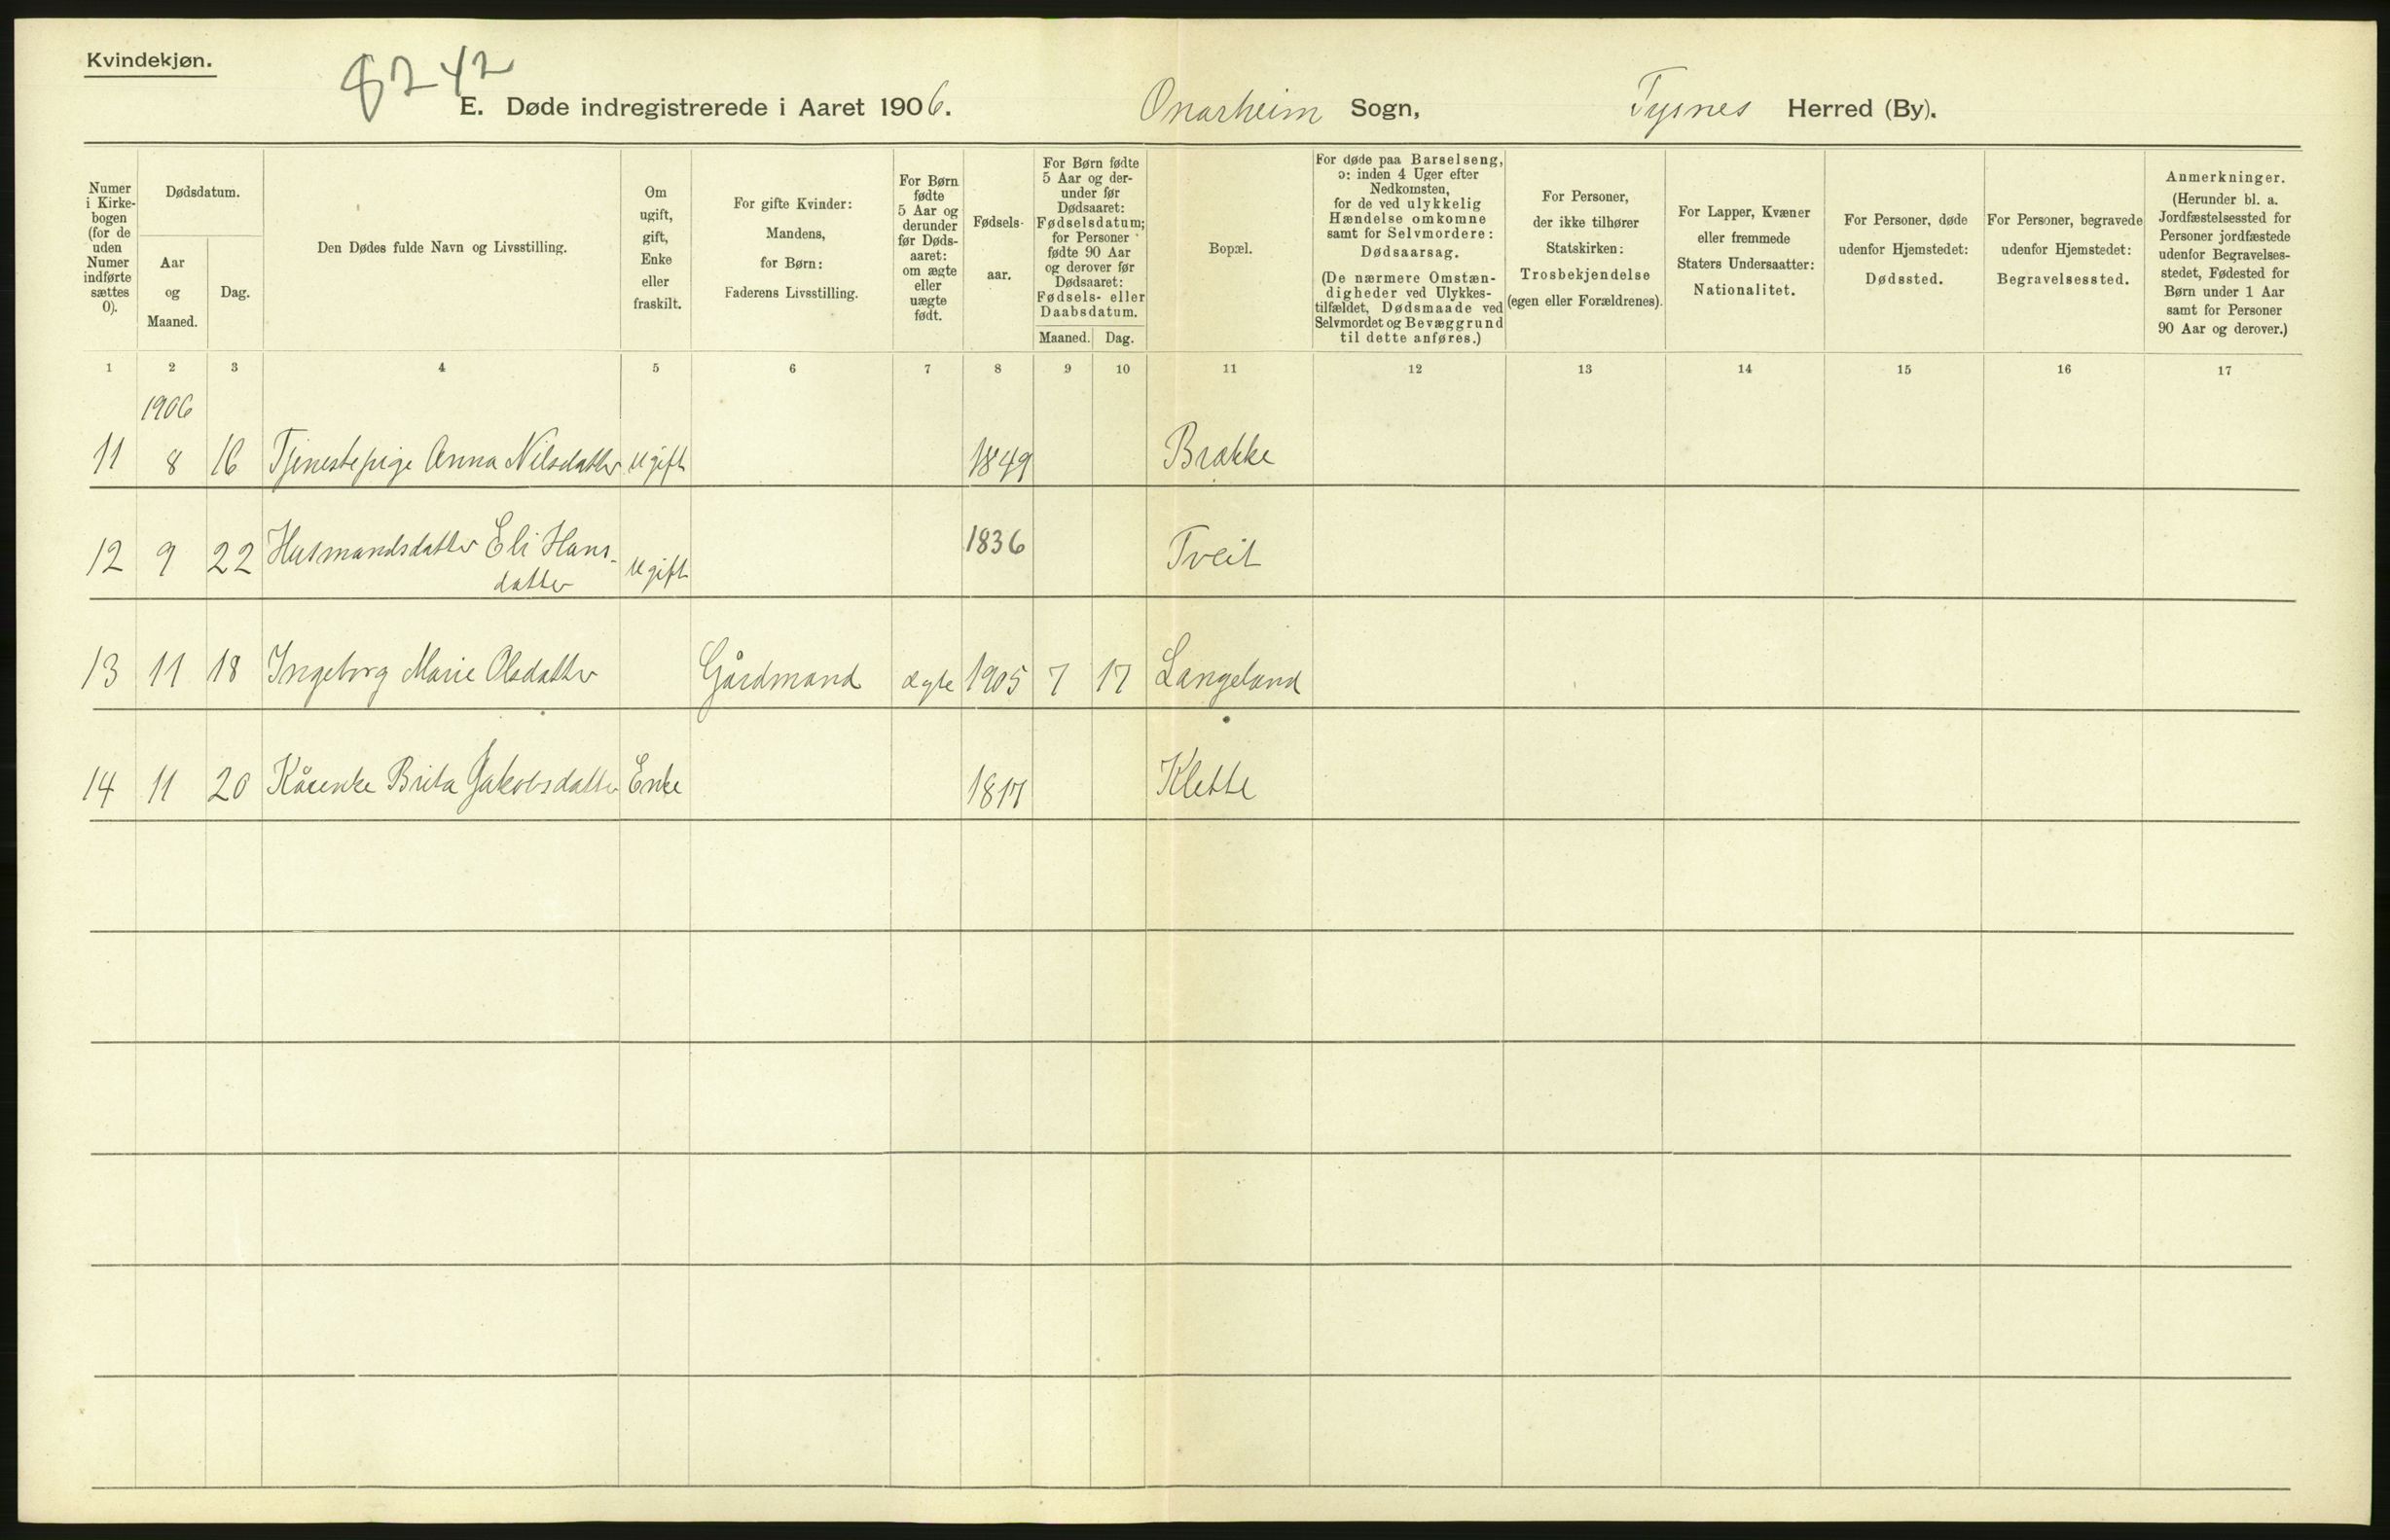 Kvindekjøn.
8242
E. Døde indregistrerede i Aaret 1906. Onarheim Sogn, Tysnes Herred (By).
Numer
i Kirke-
bogen
(for de
uden
Numer
indførte
sættes
0).
Dødsdatum.
Aar
og
Maaned.
Dag.
Den Dødes fulde Navn og Livsstilling.
Om
ugift,
gift,
Enke
eller
fraskilt.
For gifte Kvinder:
Mandens,
for Børn:
Faderens Livsstilling.
For Børn
fødte
5 Aar og
derunder
før Døds-
aaret:
om ægte
eller
uægte
født.
Fødsels-
aar.
For Børn fødte
5 Aar og der-
under før
Dødsaaret:
Fødselsdatum;
for Personer
fødte 90 Aar
og derover før
Dødsaaret:
Fødsels- eller
Daabsdatum.
Maaned. Dag.
Bopæl.
For døde paa Barselseng,
ɔ: inden 4 Uger efter
Nedkomsten,
for de ved ulykkelig
Hændelse omkomne
samt for Selvmordere:
Dødsaarsag.
(De nærmere Omstæn-
digheder ved Ulykkes-
tilfældet, Dødsmaade ved
Selvmordet og Bevæggrund
til dette anføres.)
For Personer,
der ikke tilhører
Statskirken:
Trosbekjendelse
(egen eller Forældrenes).
For Lapper, Kvæner
eller fremmede
Staters Undersaatter:
Nationalitet.
For Personer, døde
udenfor Hjemstedet:
Dødssted.
For Personer, begravede
udenfor Hjemstedet:
Begravelsessted.
Anmerkninger.
(Herunder bl. a.
Jordfæstelsessted for
Personer jordfæstede
udenfor Begravelses-
stedet, Fødested for
Børn under 1 Aar
samt for Personer
90 Aar og derover.)
1 2 3 4 5 6 7 8 9 10 11 12 13 14 15 16 17
1906
11 8 16 Tjenestepige Anna Nilsdatter Ugift 1849 Brække
12 9 22 Husmandsdatter Eli Hans- Ugift 1836 Tveit
datter
13 11 18 Ingeborg Marie Olsdatter Gårdmand ægte 1905 7 17 Langeland
14 11 20 Kårenke Brita Jakobsdatter Enke 1817 Klette